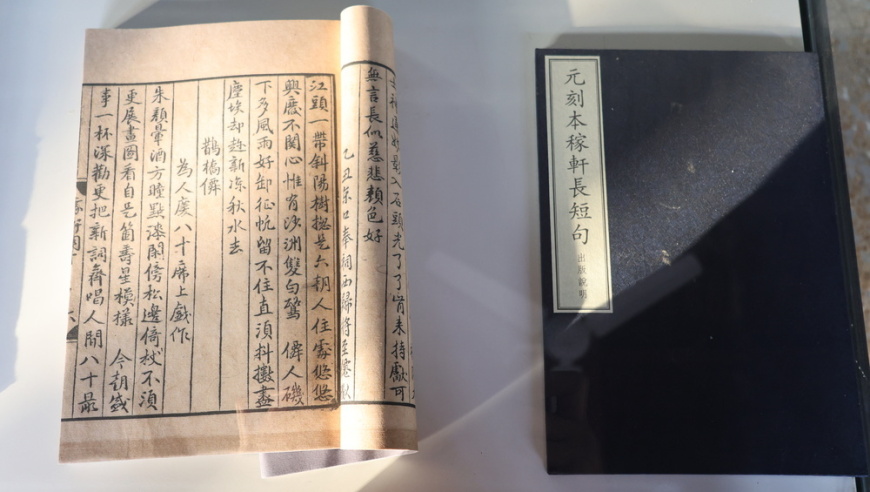 入石頭光了了肯来持獻可
無言長似慈悲顔色好
乙丑京口奉祠西歸將至
江頭一帶斜陽樹揔是六朝人住處悠悠
興廢不關心惟有沙洲雙白鷺 僊人磯
下多風雨好卸征帆留不住直湏抖擻盡
塵埃却趁新涼秋水去
鵲橋僊
為人慶八十席上戲作
朱顔暈酒方瞳點漆閑傍松邊倚杖不湏
更展畫圖看自是箇壽星模樣 今朝盛
事一杯深勸更把新詞齊唱人間八十最
元刻本稼軒長短句
出版說明